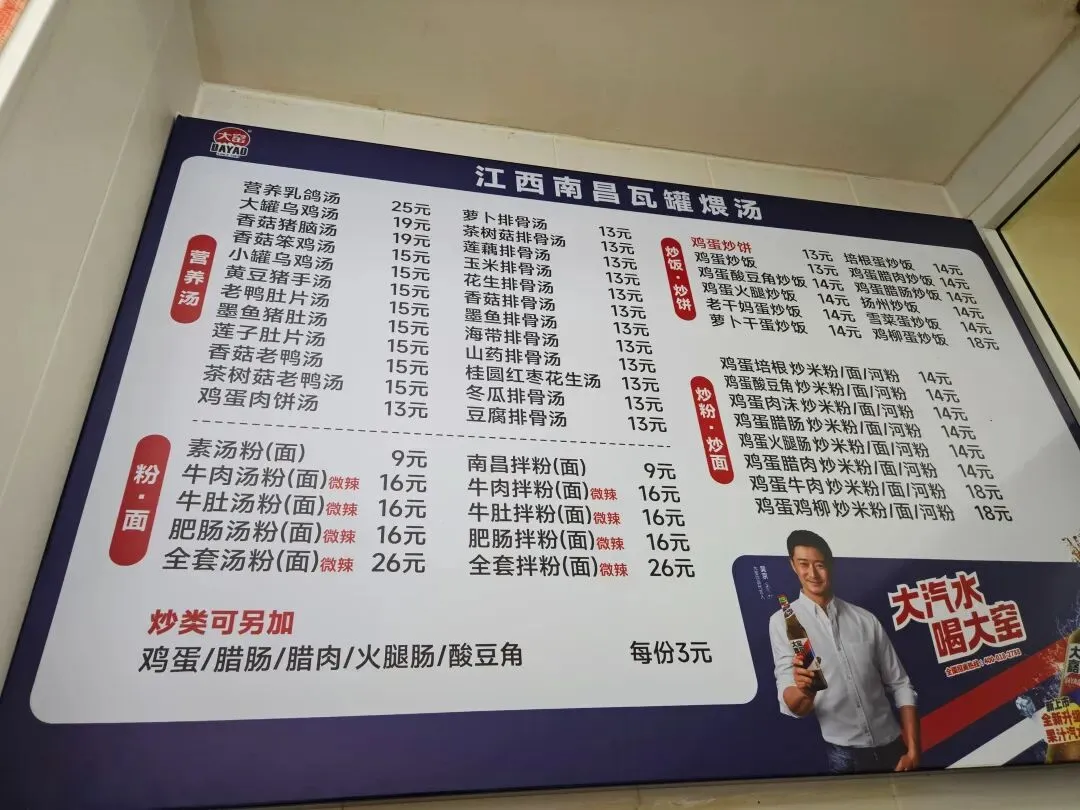 大窑
DAYAO
江西南昌瓦罐煨汤
营养汤
营养乳鸽汤 25元
大罐乌鸡汤 19元
香菇猪脑汤 19元
香菇笨鸡汤 15元
小罐乌鸡汤 15元
黄豆猪手汤 15元
老鸭肚片汤 15元
墨鱼猪肚汤 15元
莲子肚片汤 15元
香菇老鸭汤 15元
茶树菇老鸭汤 15元
鸡蛋肉饼汤 13元
萝卜排骨汤 13元
茶树菇排骨汤 13元
莲藕排骨汤 13元
玉米排骨汤 13元
花生排骨汤 13元
香菇排骨汤 13元
墨鱼排骨汤 13元
海带排骨汤 13元
山药排骨汤 13元
桂圆红枣花生汤 13元
冬瓜排骨汤 13元
豆腐排骨汤 13元
粉·面
素汤粉(面) 9元
牛肉汤粉(面)微辣 16元
牛肚汤粉(面)微辣 16元
肥肠汤粉(面)微辣 16元
全套汤粉(面)微辣 26元
南昌拌粉(面) 9元
牛肉拌粉(面)微辣 16元
牛肚拌粉(面)微辣 16元
肥肠拌粉(面)微辣 16元
全套拌粉(面)微辣 26元
炒类可另加
鸡蛋/腊肠/腊肉/火腿肠/酸豆角 每份3元
炒饭·炒饼
鸡蛋炒饼 13元
鸡蛋炒饭 13元
鸡蛋酸豆角炒饭 14元
鸡蛋火腿炒饭 14元
老干妈蛋炒饭 14元
萝卜干蛋炒饭 14元
培根蛋炒饭 14元
鸡蛋腊肉炒饭 14元
鸡蛋腊肠炒饭 14元
扬州炒饭 14元
雪菜蛋炒饭 14元
鸡柳蛋炒饭 18元
炒粉·炒面
鸡蛋培根 炒米粉/面/河粉 14元
鸡蛋酸豆角 炒米粉/面/河粉 14元
鸡蛋肉沫 炒米粉/面/河粉 14元
鸡蛋腊肠 炒米粉/面/河粉 14元
鸡蛋火腿肠 炒米粉/面/河粉 14元
鸡蛋腊肉 炒米粉/面/河粉 14元
鸡蛋牛肉 炒米粉/面/河粉 18元
鸡蛋鸡柳 炒米粉/面/河粉 18元
大汽水
喝大窑
新上市
全新升级
果汁汽水